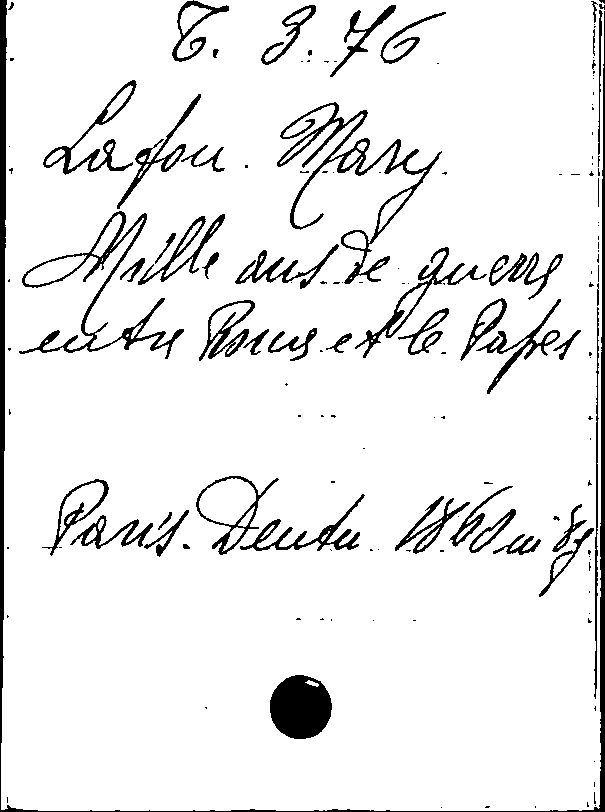 T. 3. 76
Lafon. Mary.
Mille ans de guerre
entre Rome et le Papes
Paris. Dentu. 1860 in 8º